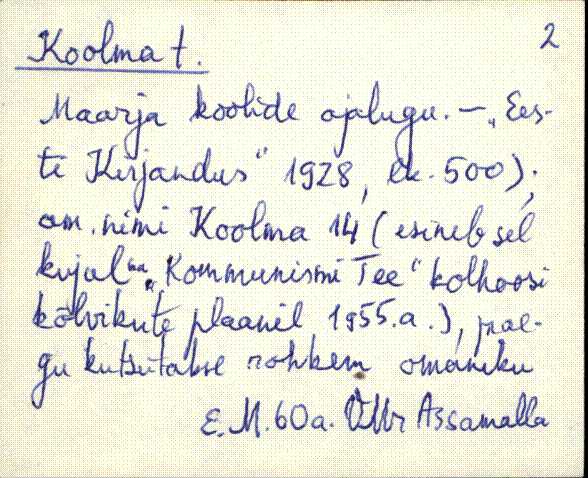 2
Koolma t.
Maarja koolide ajalugu. — „Ees-
ti Kirjandus" 1928, lk. 500);
om. nimi Koolma 14 (esineb sel
kujul "Kommunismi Tee" kolhoosi
kõlvikute plaanil 1955.a.), prae-
gu kutsutakse rohkem omaniku
E.M. 60a. VMr Assamalla